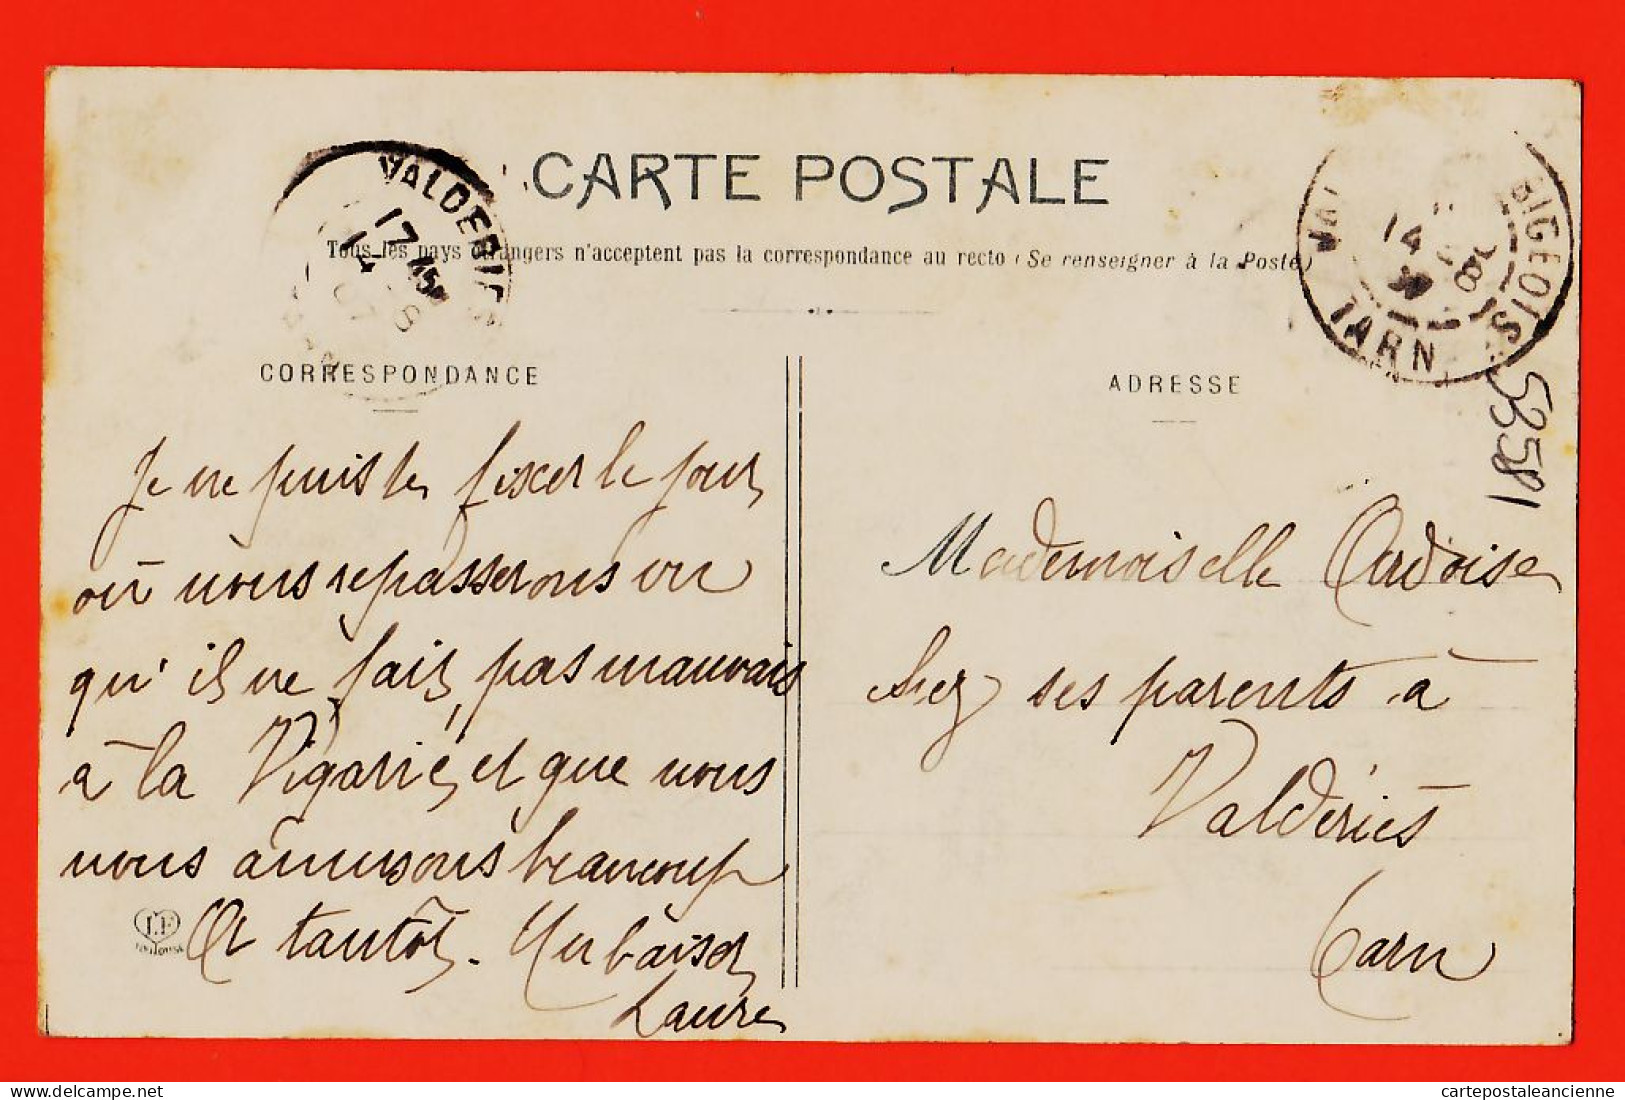 CARTE POSTALE
Tous les pays étrangers n'acceptent pas la correspondance au recto (Se renseigner à la Poste)
VALDERIÈS
17 45
14 -8
07
BIGEOIS
14 -8
TARN
CORRESPONDANCE
ADRESSE
52581
Je ne puis te fixer le jour
où nous repasserons vu
qu'il ne fait pas mauvais
à la Vigarié, et que nous
nous amusons beaucoup
A tantôt. Un baiser
Laure
LF
Toulouse
Mademoiselle Ardoise
chez ses parents à
Valdériès
Tarn
cartepostaleancienne